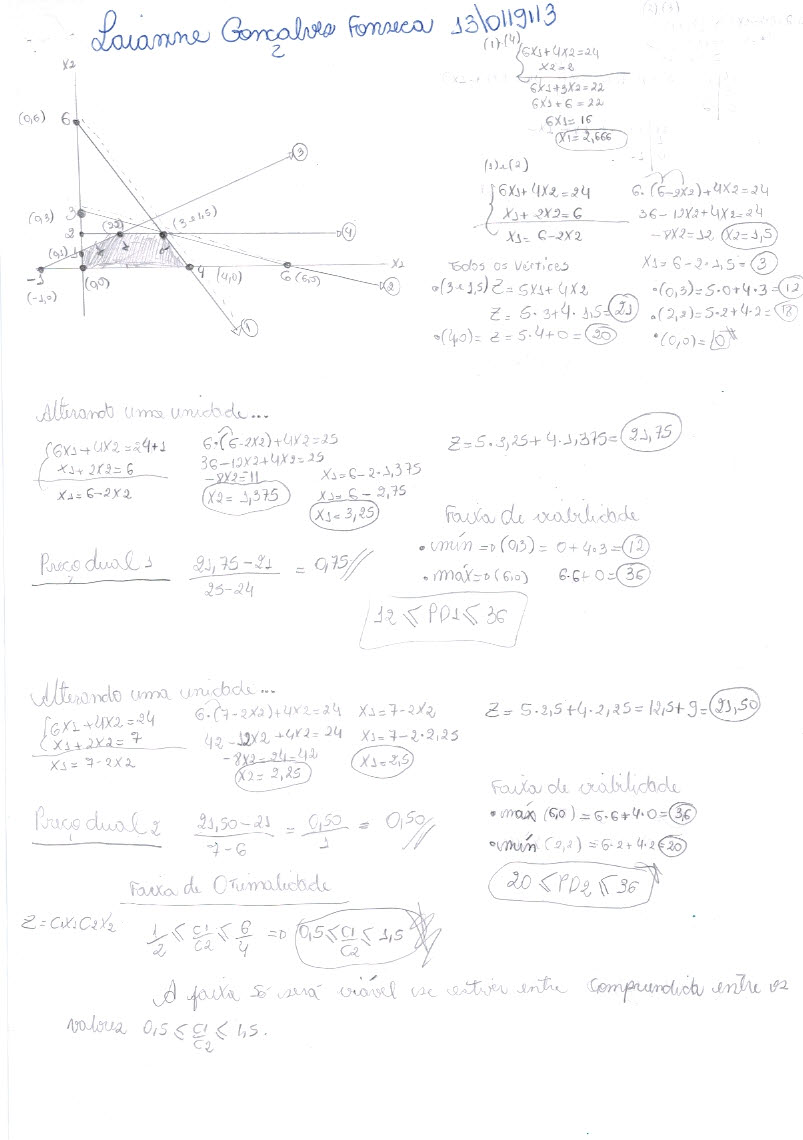 Laianne Gonçalves Fonseca 13/0119113
X2
(0,6) 6
(0,3) 3
2
(0,1) 1
-1
(-1,0)
(0,0)
(2,2)
(3 e 1,5)
4 (4,0)
6 (6,0)
X1
3
4
2
1
(1) (4)
6X1+4X2=24
X2=2
6X1+3X2=22
6X1+6=22
6X1=16
X1=2,666
(1) e (2)
6X1+4X2=24
X1+2X2=6
X1=6-2X2
6·(6-2X2)+4X2=24
36-12X2+4X2=24
-8X2=12 X2=1,5
X1=6-2·1,5=3
Todos os vértices
(3 e 1,5) Z=5X1+4X2
Z=5·3+4·1,5=21
(4,0)= Z=5·4+0=20
(0,3)=5·0+4·3=12
(2,2)=5·2+4·2=18
(0,0)=0
Alterando uma unidade...
6X1+4X2=24+1
X1+2X2=6
X1=6-2X2
6·(6-2X2)+4X2=25
36-12X2+4X2=25
-8X2=11
X2=1,375
X1=6-2·1,375
X1=6-2,75
X1=3,25
Z=5·3,25+4·1,375=21,75
Preço dual 1
21,75-21
25-24
= 0,75
Faixa de viabilidade
mín => (0,3) = 0+4·3=12
máx => (6,0) 6·6+0=36
12 ≤ PD1 ≤ 36
Alterando uma unidade...
6X1+4X2=24
X1+2X2=7
X1=7-2X2
6·(7-2X2)+4X2=24
42-12X2+4X2=24
-8X2=24-42
X2=2,25
X1=7-2X2
X1=7-2·2,25
X1=2,5
Z=5·2,5+4·2,25=12,5+9=21,50
Preço dual 2
21,50-21 = 0,50 = 0,50
7-6 1
Faixa de viabilidade
máx (6,0)=6·6+4·0=36
mín (2,2)=6·2+4·2=20
20 ≤ PD2 ≤ 36
Faixa de Otimalidade
Z=C1X1C2X2
1/2 ≤ C1/C2 ≤ 6/4 => 0,5 ≤ C1/C2 ≤ 1,5
A faixa só será viável se estiver entre compreendida entre os
valores 0,5 ≤ C1/C2 ≤ 1,5.